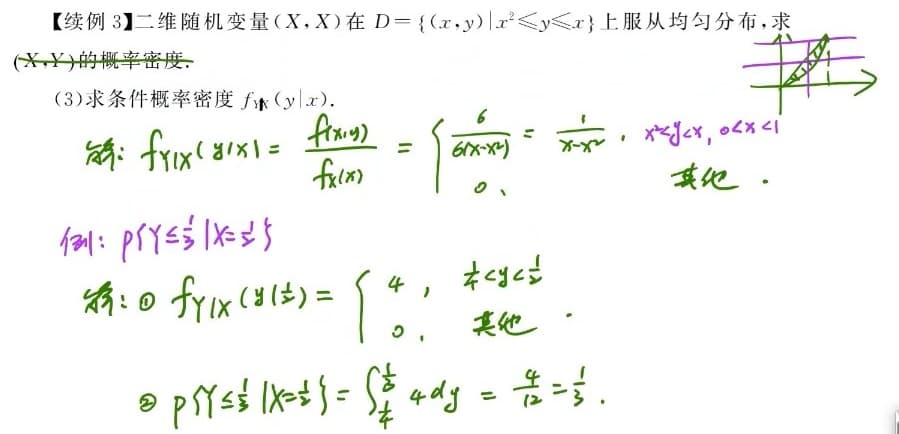 【续例 3】二维随机变量(X,X)在 D={(x,y)|x²≤y≤x}上服从均匀分布,求
(X,Y)的概率密度.
(3)求条件概率密度 f_{Y|X}(y|x).
解: f_{Y|X}(y|x) = f(x,y)/f_X(x) = { 6/6(x-x²) = 1/(x-x²), x²<y<x, 0<x<1
0、 其他.
例: P{Y≤1/3|X=1/2}
解:① f_{Y|X}(y|1/2) = { 4, 1/4<y<1/2
0, 其他.
② P{Y≤1/3|X=1/2} = ∫_{1/4}^{1/3} 4dy = 4/12 = 1/3.